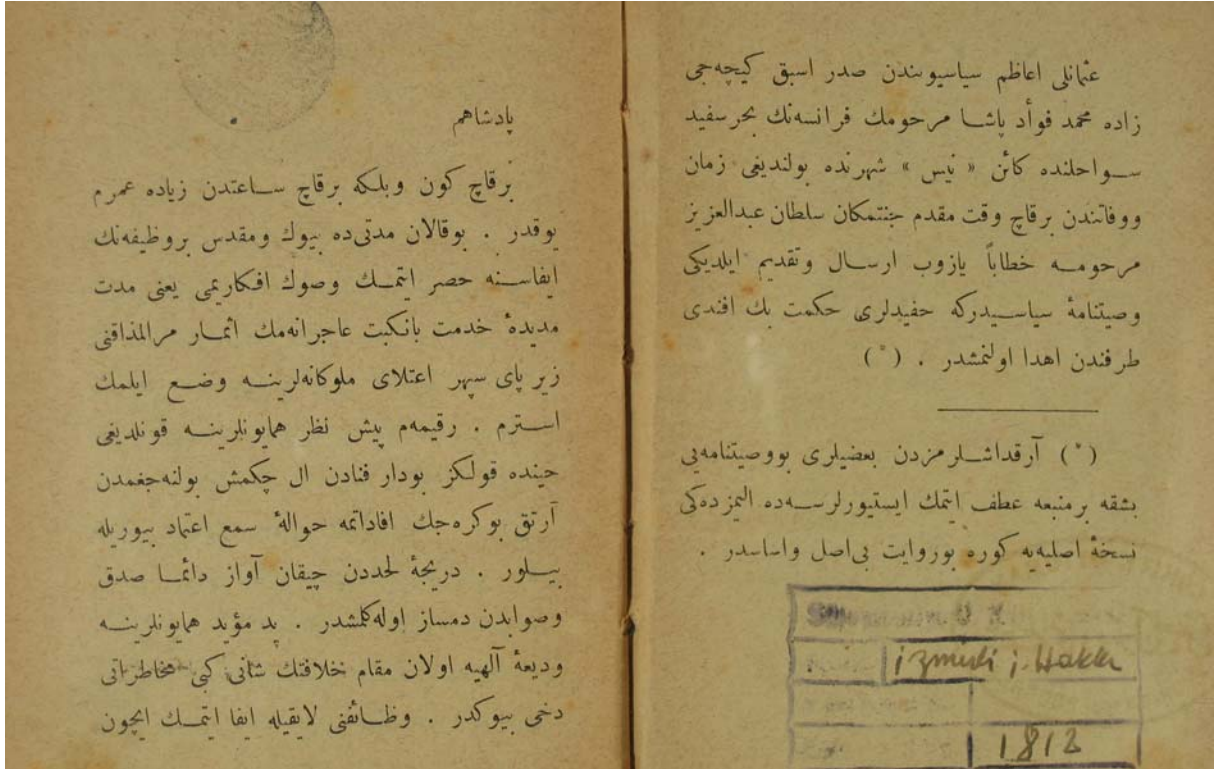 عثمانلی اعاظم سیاسیونندن صدر اسبق کیچه‌جی
زاده محمد فوأد پاشا مرحومك فرانسه‌نك بحر سفید
سواحلنده كائن « نیس » شهرنده بولندیغی زمان
ووفاتندن برقاچ وقت مقدم جنتمكان سلطان عبدالعزیز
مرحومه خطاباً یازوب ارسال وتقدیم ایلدیكی
وصیتنامهٔ سیاسیدركه حفیدلری حكمت بك افندی
طرفندن اهدا اولنمشدر . (*)
(*) آرقداشلرمزدن بعضیلری بووصیتنامه‌یی
بشقه برمنبعه عطف ایتمك ایستیورلرسه‌ده الیمزده‌كی
نسخهٔ اصلیه‌یه كوره بوروایت بی‌اصل واساسدر .
izmirli i. Hakkı
1812
پادشاهم
برقاچ كون وبلكه برقاچ ساعتدن زیاده عمرم
یوقدر . بوقالان مدتی‌ده بیوك ومقدس بروظیفه‌نك
ایفاسنه حصر ایتمك وصوك افكاریمی یعنی مدت
مدیدهٔ خدمت بانكبت عاجرانه‌مك اثمار مرالمذاقنی
زیر پای سپهر اعتلای ملوكانه‌لرینه وضع ایلمك
استرم . رقیمه‌م پیش نظر همایونلرینه قونلدیغی
حینده قولكز بودار فنادن ال چكمش بولنه‌جغمدن
آرتق بوكره‌جك افاداتمه حوالهٔ سمع اعتماد بیوریله
بیلور . دریچهٔ لحددن چیقان آواز دائما صدق
وصوابدن دمساز اوله‌كلمشدر . ید مؤید همایونلرینه
ودیعهٔ آلهیه اولان مقام خلافتك شانی كبی مخاطراتی
دخی بیوكدر . وظائفنی لایقیله ایفا ایتمك ایچون